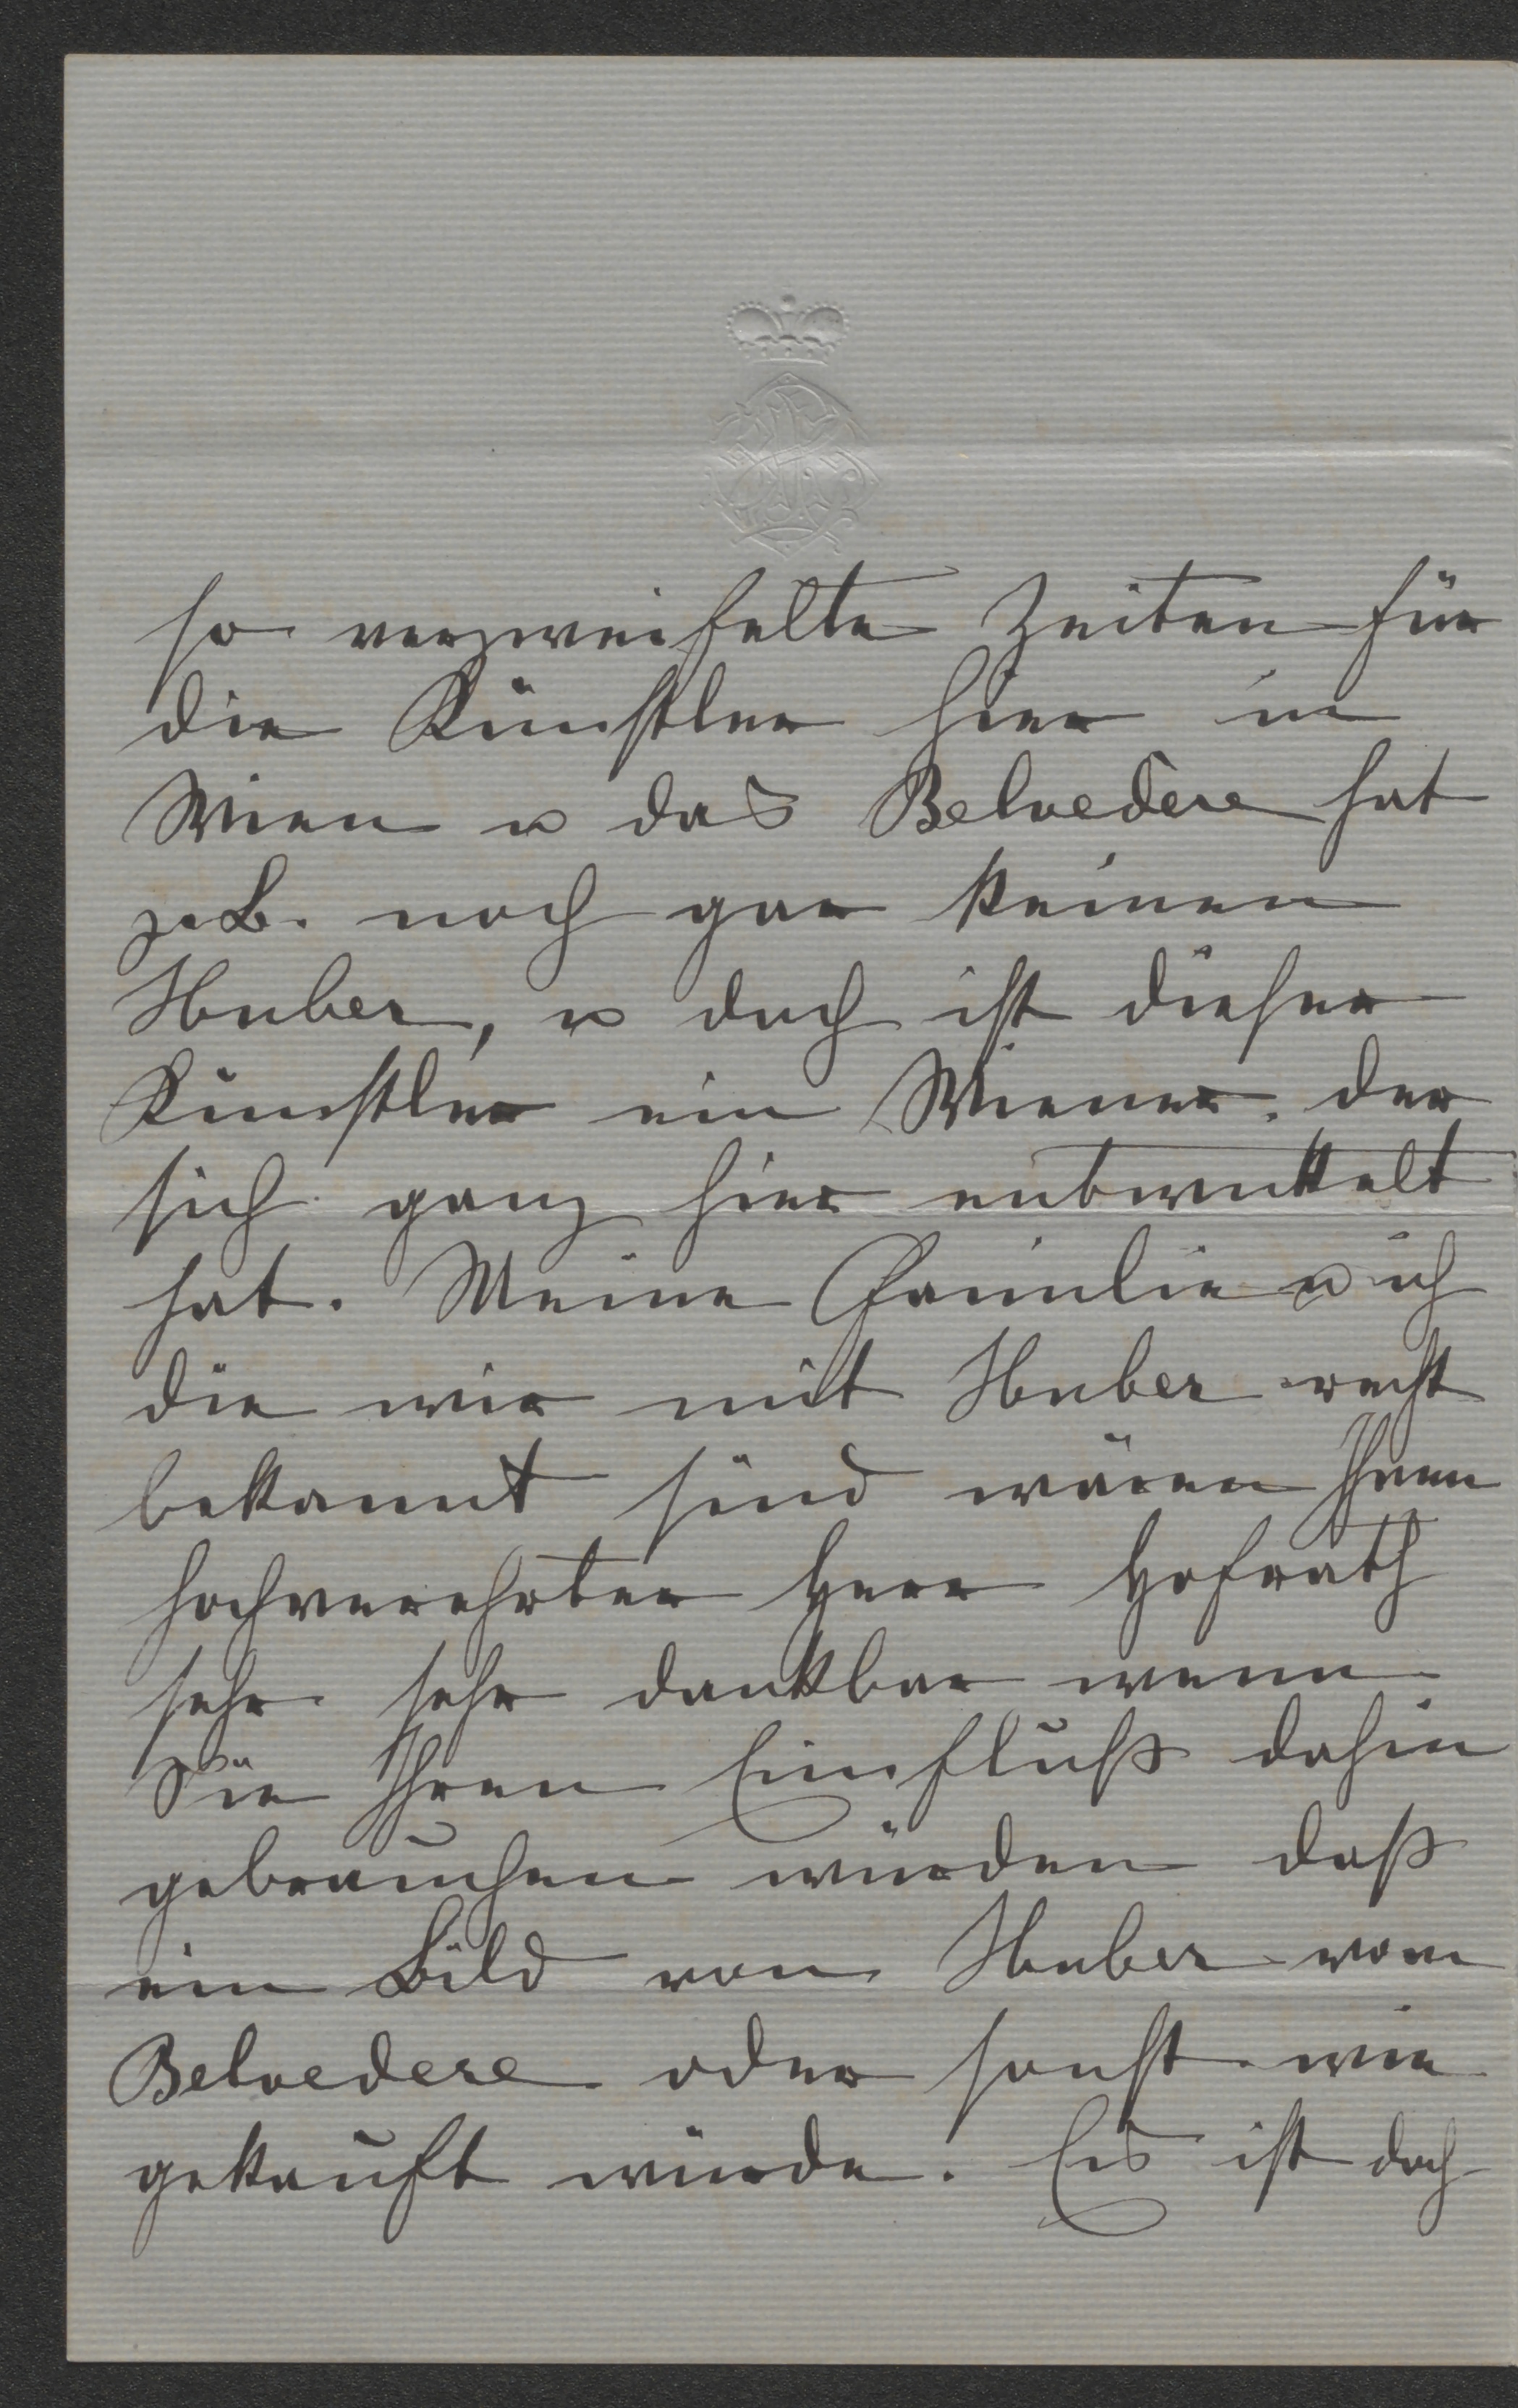 so verzweifelte Zeiten für
die Künstler hier in
Wien u das Belvedere hat
z. B. noch gar keinen
Huber, u doch ist dieser
Künstler ein Wiener. der
sich ganz hier entwickelt
hat. Meine Familie u ich
die wir mit Huber recht
bekannt sind wären Ihnen
hochverehrter Herr Hofrath
sehr sehr dankbar wenn
Sie Ihren Einfluß dahin
gebrauchen würden daß
ein Bild von Huber vom
Belvedere oder sonst wie
gekauft würde. Es ist doch